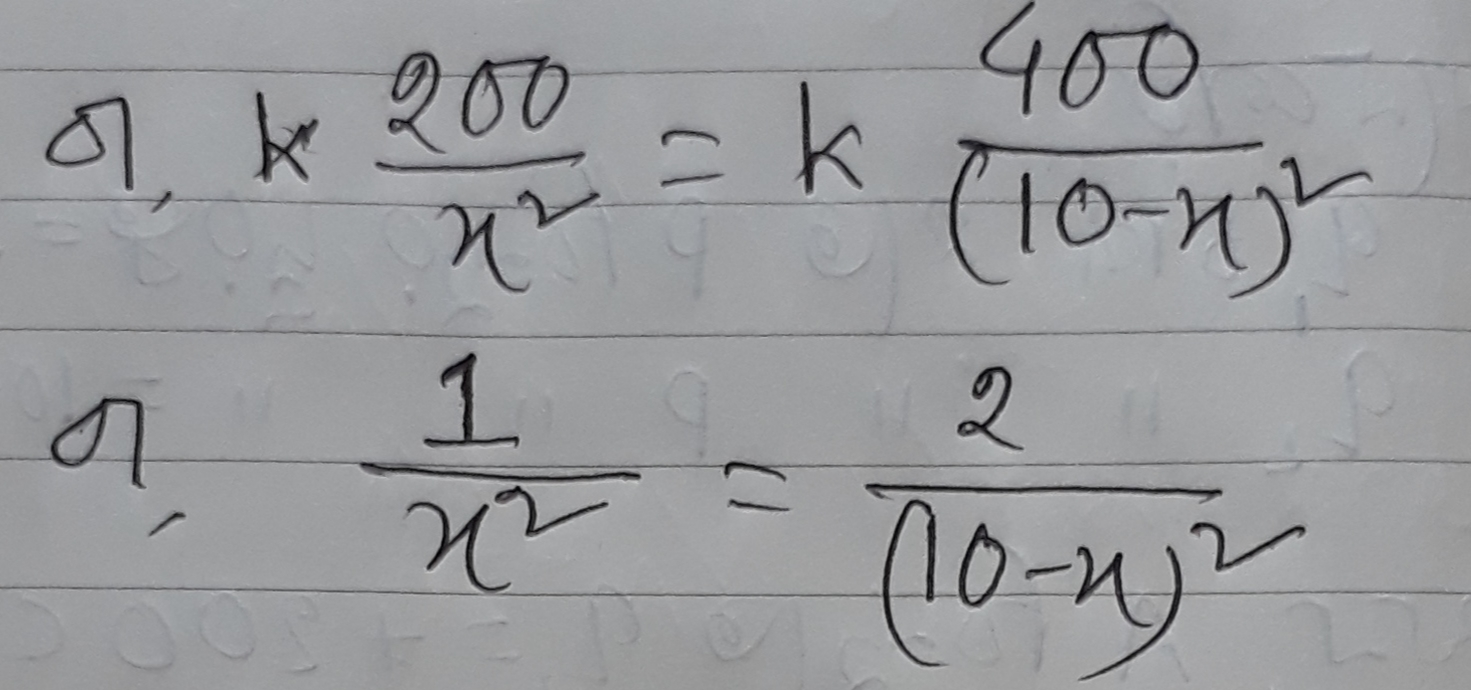 or, k 200/x² = k 400/(10-x)²
or, 1/x² = 2/(10-x)²